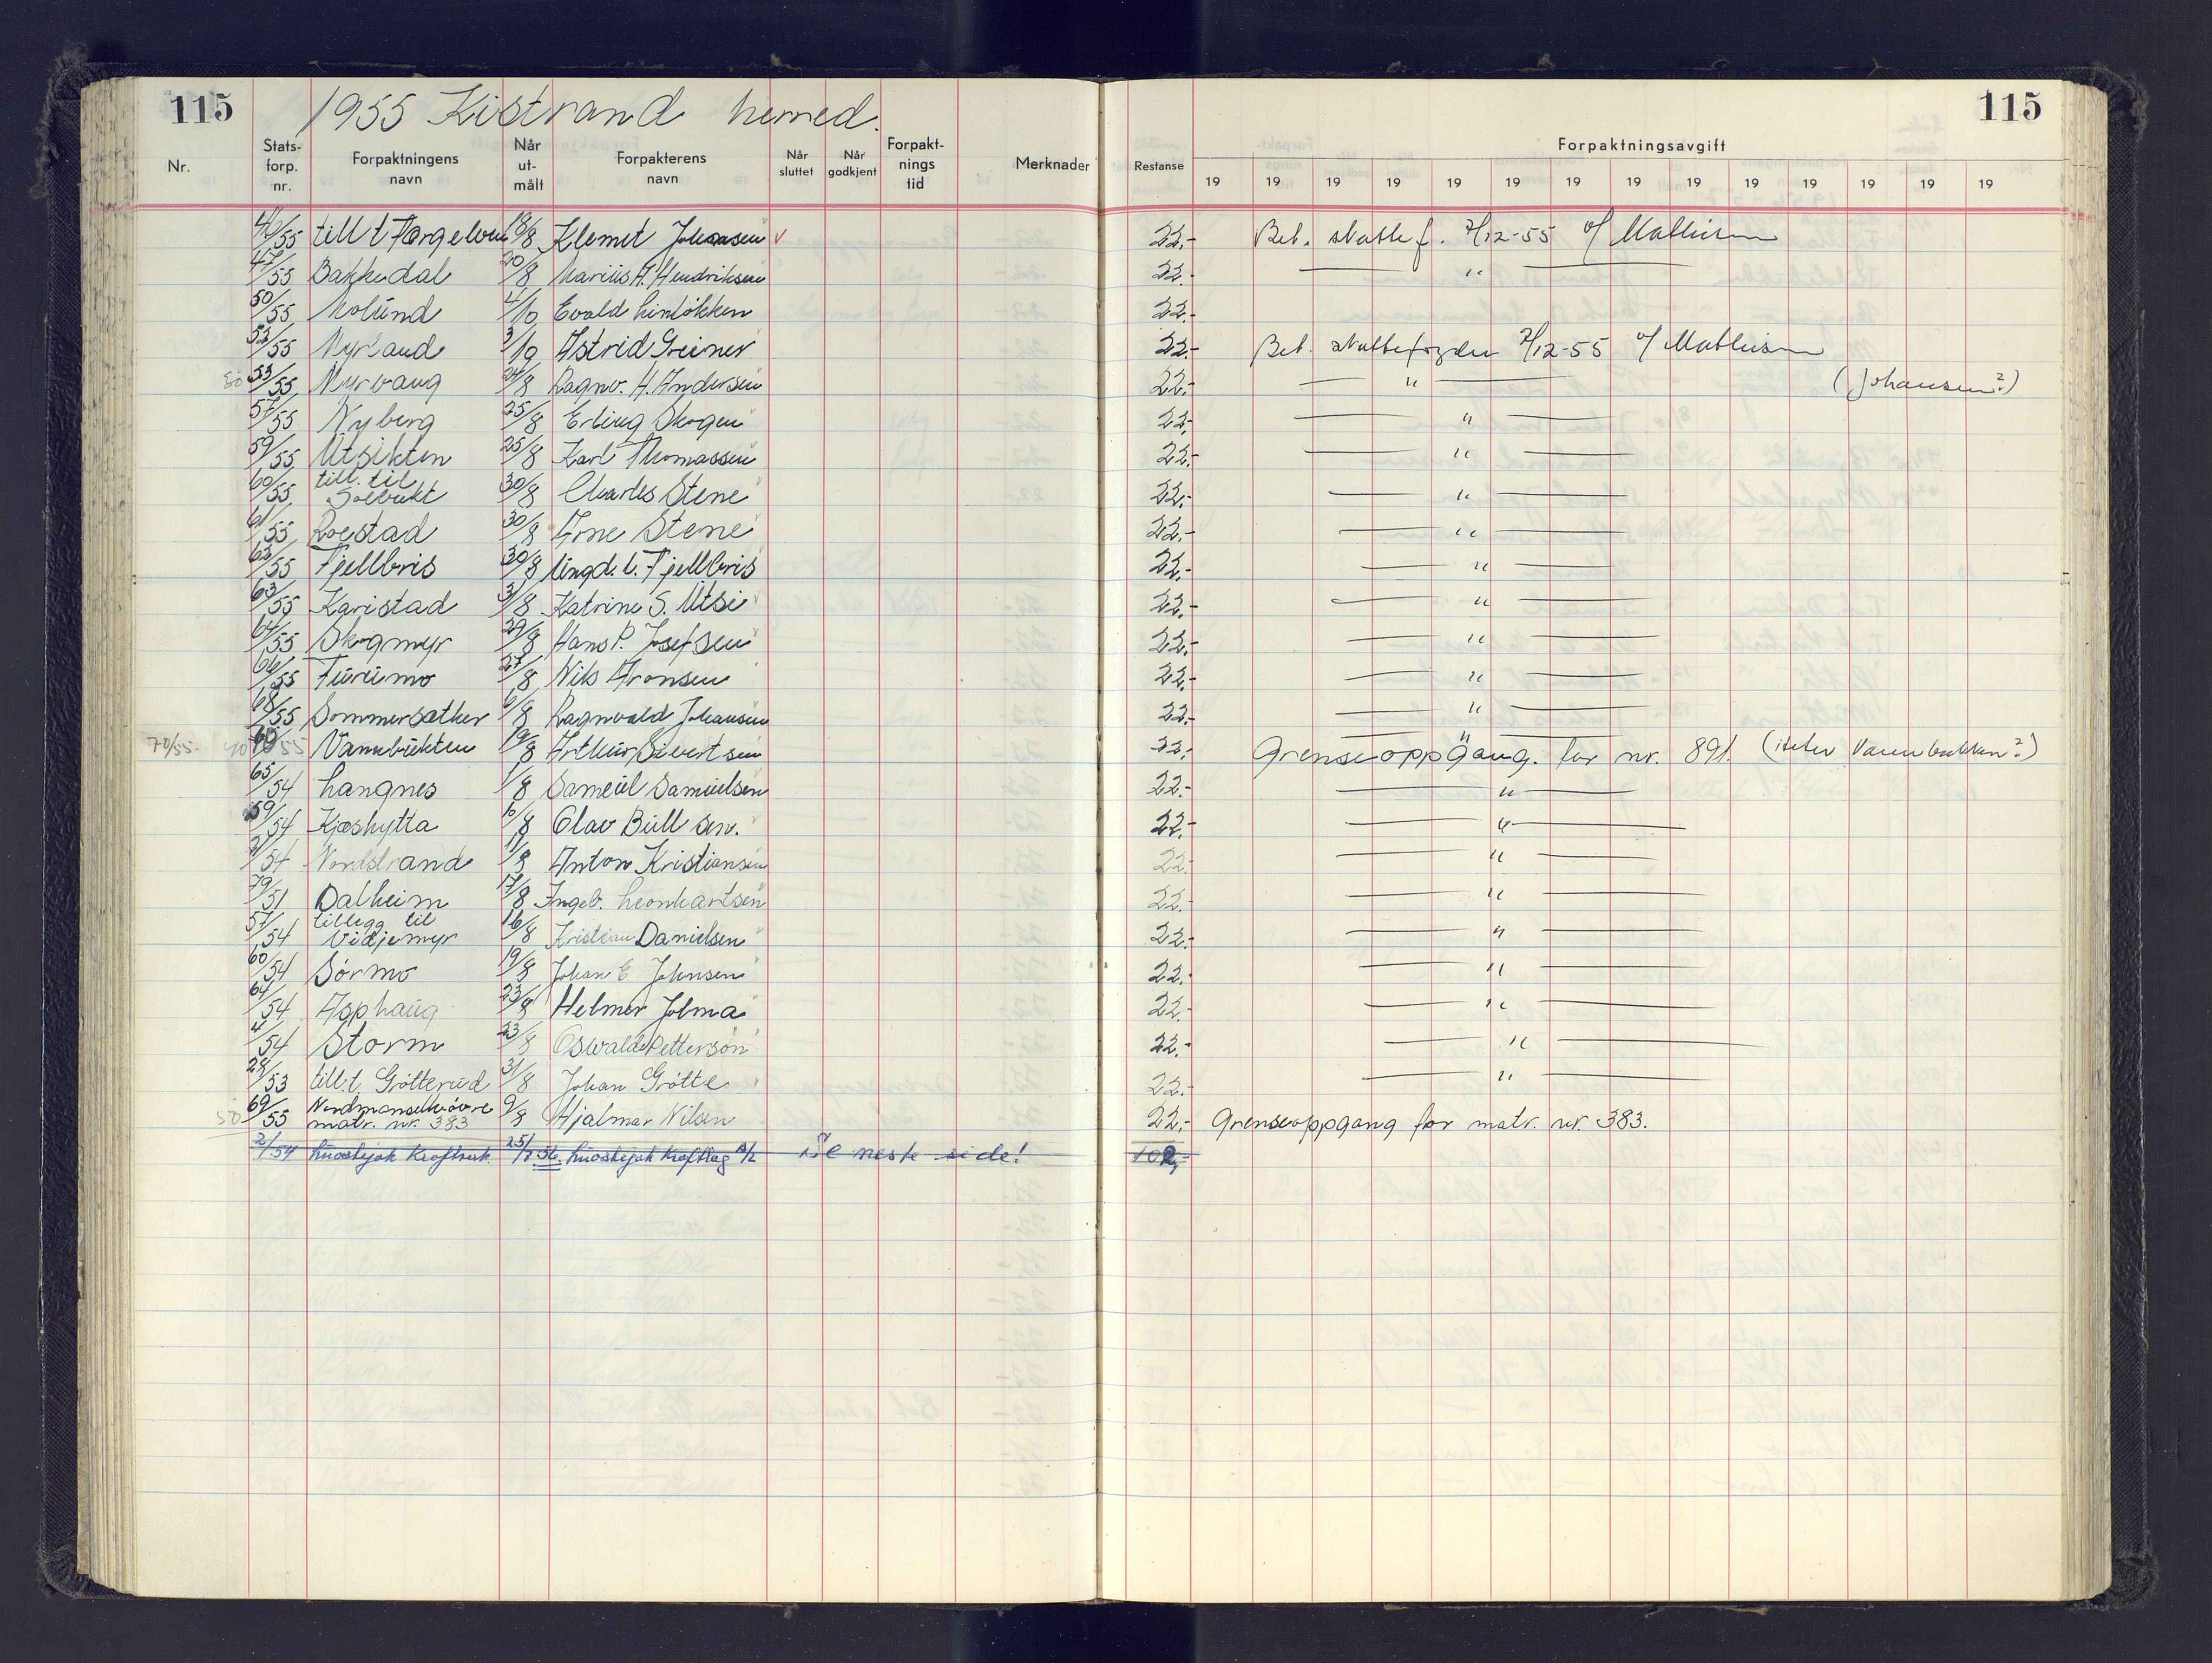 115 1955 Kistrand herred. 115
Nr. Stats-forp. nr. Forpaktningens navn Når ut-målt Forpakterens navn Når sluttet Når godkjent Forpakt-nings tid Merknader Restanse Forpaktningsavgift
19 19 19 19 19 19 19 19 19 19 19 19 19 19
till t 18/8 Klemet Johansen 22.- Bet. skattef. 7/12-55 v/ Mathisen
47/55 Bakkedal 20/8 Marius A. Hendriksen 22.- — " —
50/55 Molund 4/10 Evald 22.-
55 Nyland 3/10 Astrid Greiner 22.- Bet. skattefogden 7/12-55 v/ Mathisen
53/55 Nyvang 24/8 Ragnv. H. Andersen 22.- — " — (Johansen?)
57/55 Nyberg 25/8 Erling Skogen 22,- — " —
59/55 Utsikten 25/8 Karl Thomassen 22.- — " —
60/55 till. til Solbukt 30/8 Charles Stene 22.- — " —
61/55 Roestad 30/8 Arne Stene 22.- — " —
62/55 Fjellbris 30/8 Ungd. l. Fjellbris 22.- — " —
63/55 Karistad 31/8 Katrine S. Utsi 22.- — " —
64/55 Skogmyr 29/8 Hans P. Josefsen 22.- — " —
66/55 Furumo 27/8 Nils Aronsen 22.- — " —
68/55 Sommersæther 6/8 Ragnvald Johansen 22.- — " —
70/55. Vannbukten 19/8 Arthur Sivertsen 22.- — " — Grenseoppgang. for nr. 891.
65/54 Langnes 1/8 Samuel Samuelsen 22.- — " —
59/54 Kjæshytta 10/8 Olav Bull sen. 22.- — " —
54 Nordstrand 11/8 Anton Kristiansen 22.- — " —
79/51 Dalheim 17/8 Ingeb. Leonhartsen 22.- — " —
57/54 tillegg til Vidjemyr 16/8 Kristian Danielsen 22.- — " —
60/54 Sørmo 19/8 Johan E Johnsen 22.- — " —
64/54 Asphaug 23/8 Helmer Jolma 22.- — " —
4/54 Storm 23/8 Oswald Petterson 22.- — " —
28/53 till. t. Grötterud 31/8 Johan Grötte 22.- — " —
69/55 matr. nr. 383 9/8 Hjalmar Nilsen 22.- Grenseoppgang for matr. nr. 383.
2/54 Luostejok Kraftverk 25/7 56. Luostejok Kraftlag A/L Se neste side! 102,-